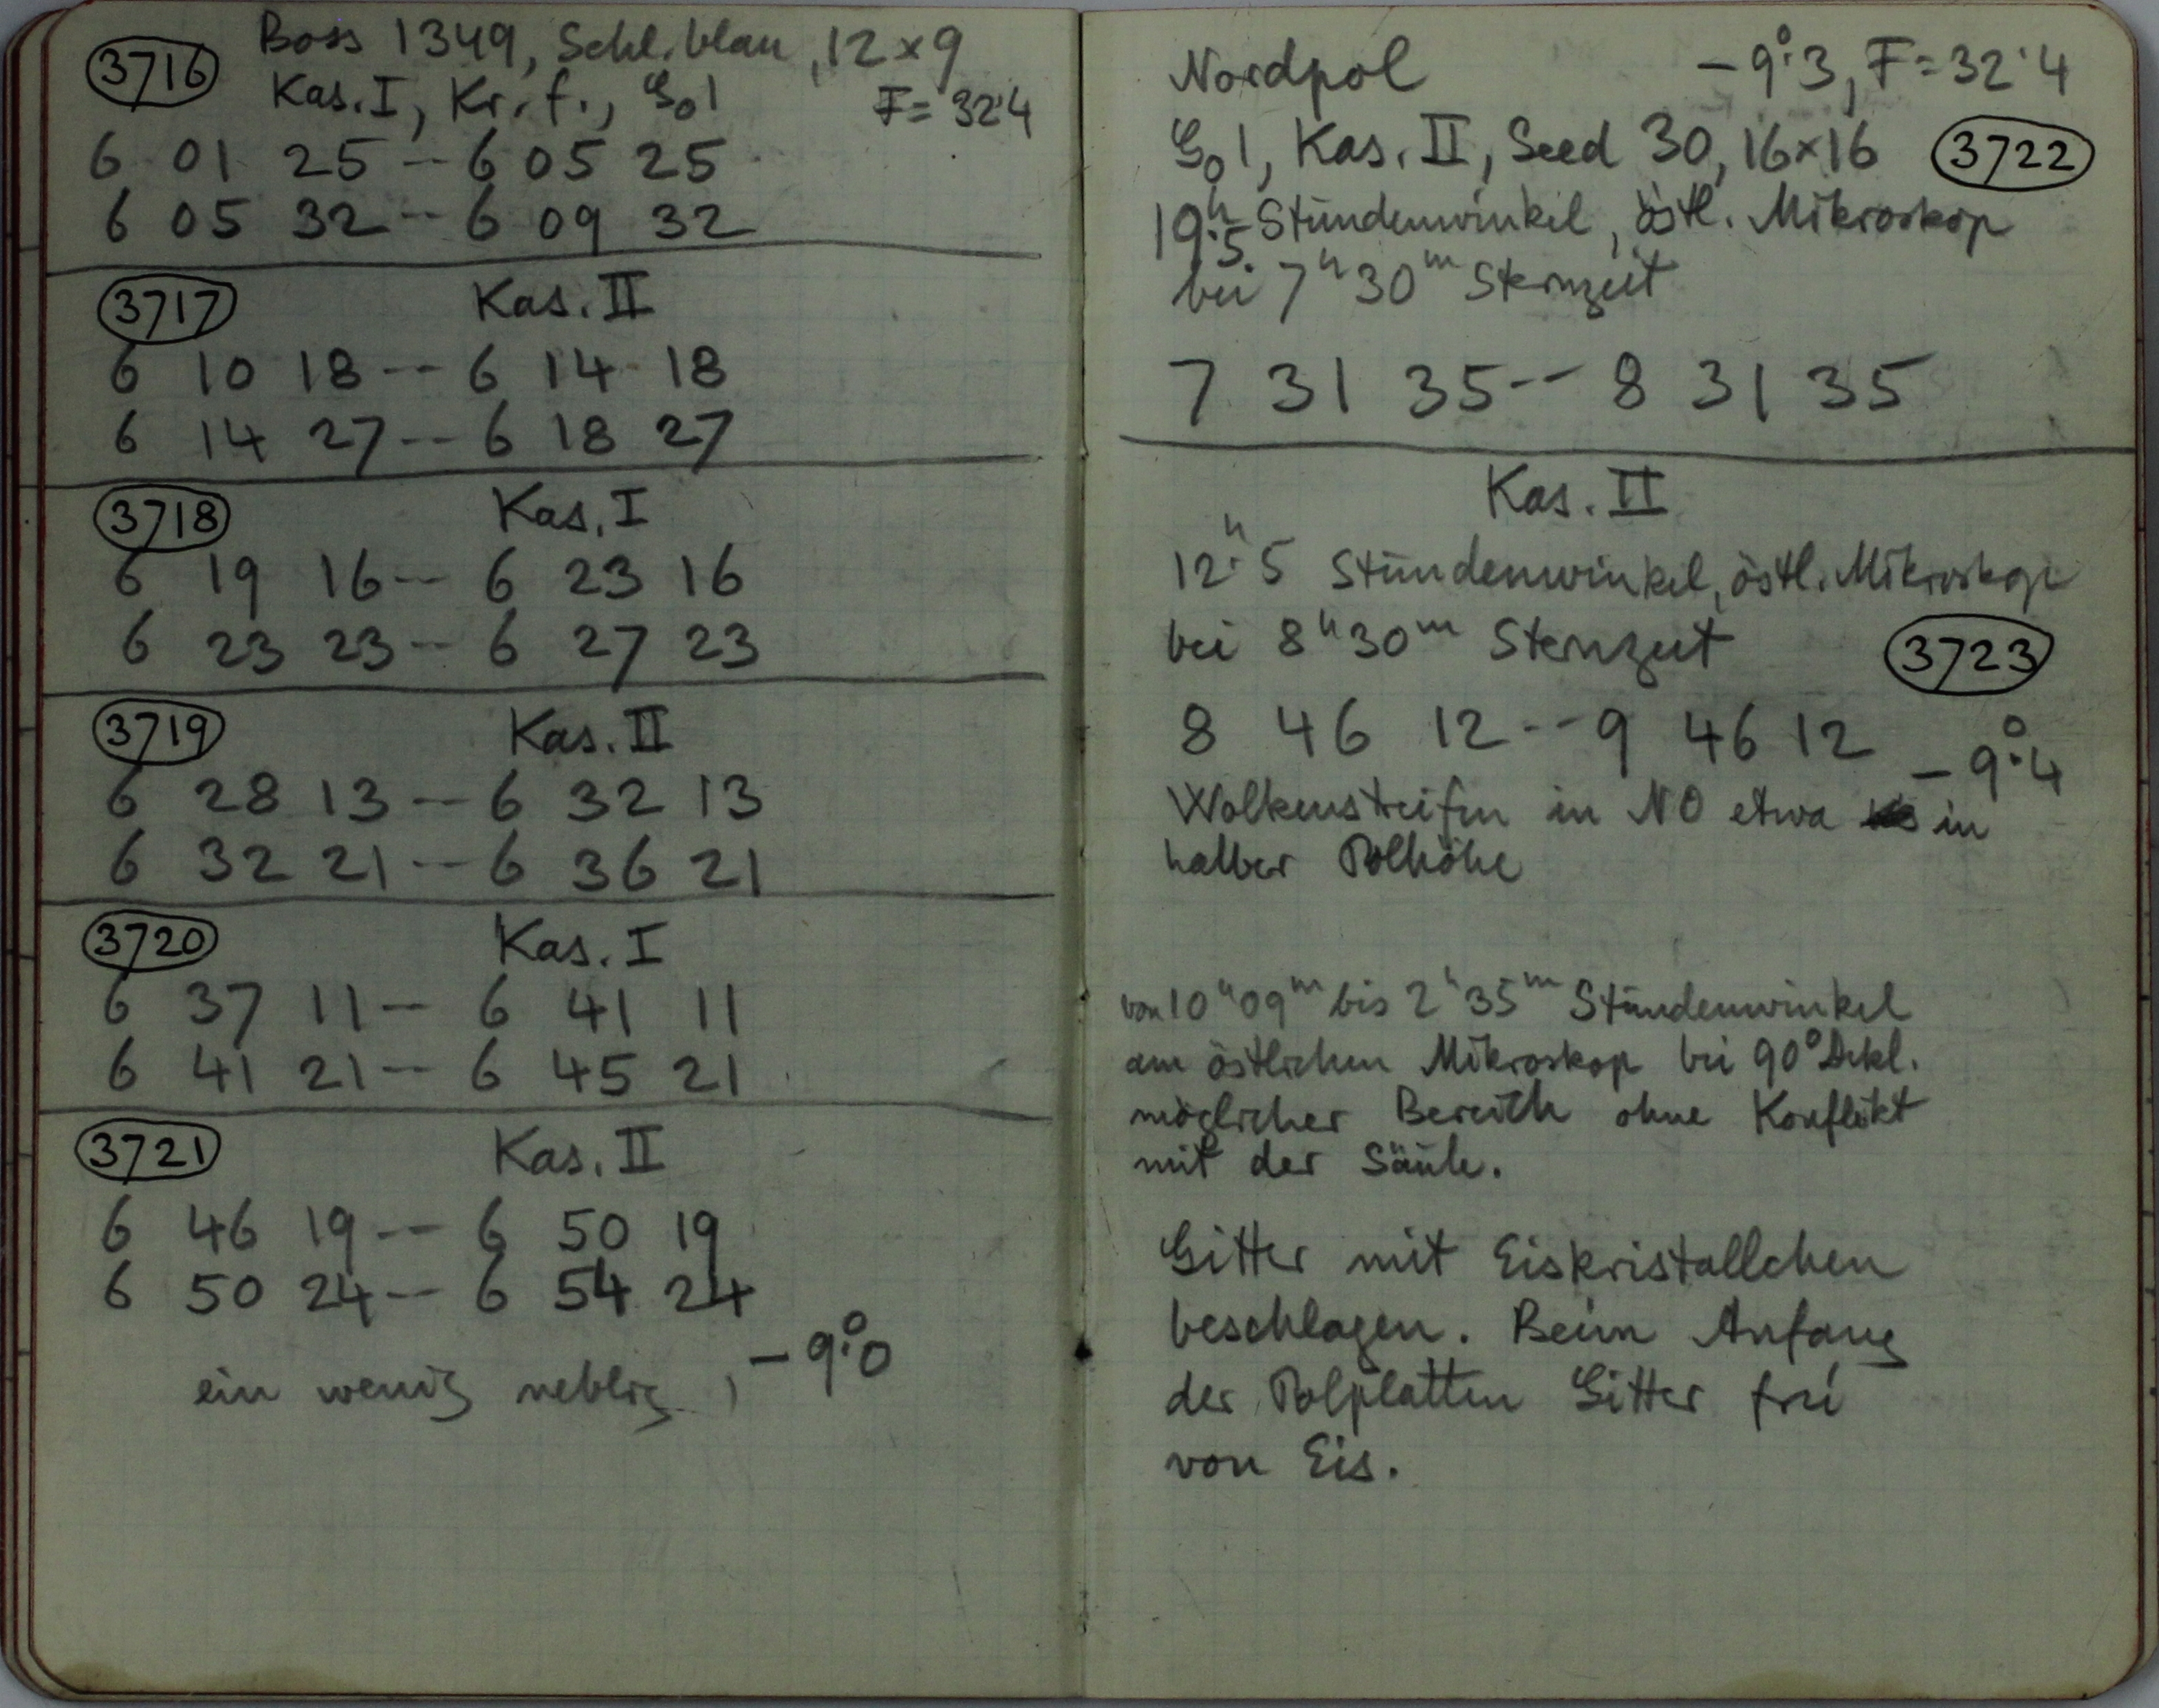 3716 Boss 1349, Schl. blau, 12×9
Kas. I, Kr. f., G₀1 F = 32.4
6 01 25 -- 6 05 25
6 05 32 -- 6 09 32
3717 Kas. II
6 10 18 -- 6 14 18
6 14 27 -- 6 18 27
3718 Kas. I
6 19 16 -- 6 23 16
6 23 23 -- 6 27 23
3719 Kas. II
6 28 13 -- 6 32 13
6 32 21 -- 6 36 21
3720 Kas. I
6 37 11 -- 6 41 11
6 41 21 -- 6 45 21
3721 Kas. II
6 46 19 -- 6 50 19
6 50 24 -- 6 54 24
ein wenig neblig, -9°.0
Nordpol -9°.3, F = 32.4
G₀1, Kas. II, Seed 30, 16×16 3722
19ʰ.5 Stundenwinkel, östl. Mikroskop
bei 7ʰ30ᵐ Sternzeit
7 31 35 -- 8 31 35
Kas. II
12ʰ.5 Stundenwinkel, östl. Mikroskop
bei 8ʰ30ᵐ Sternzeit 3723
8 46 12 -- 9 46 12 -9°.4
Wolkenstreifen in NO etwa in
halber Polhöhe
von 10ʰ09ᵐ bis 2ʰ35ᵐ Stundenwinkel
am östlichen Mikroskop bei 90° Dekl.
möglicher Bereich ohne Konflikt
mit der Säule.
Gitter mit Eiskristallchen
beschlagen. Beim Anfang
der Polplatten Gitter frei
von Eis.